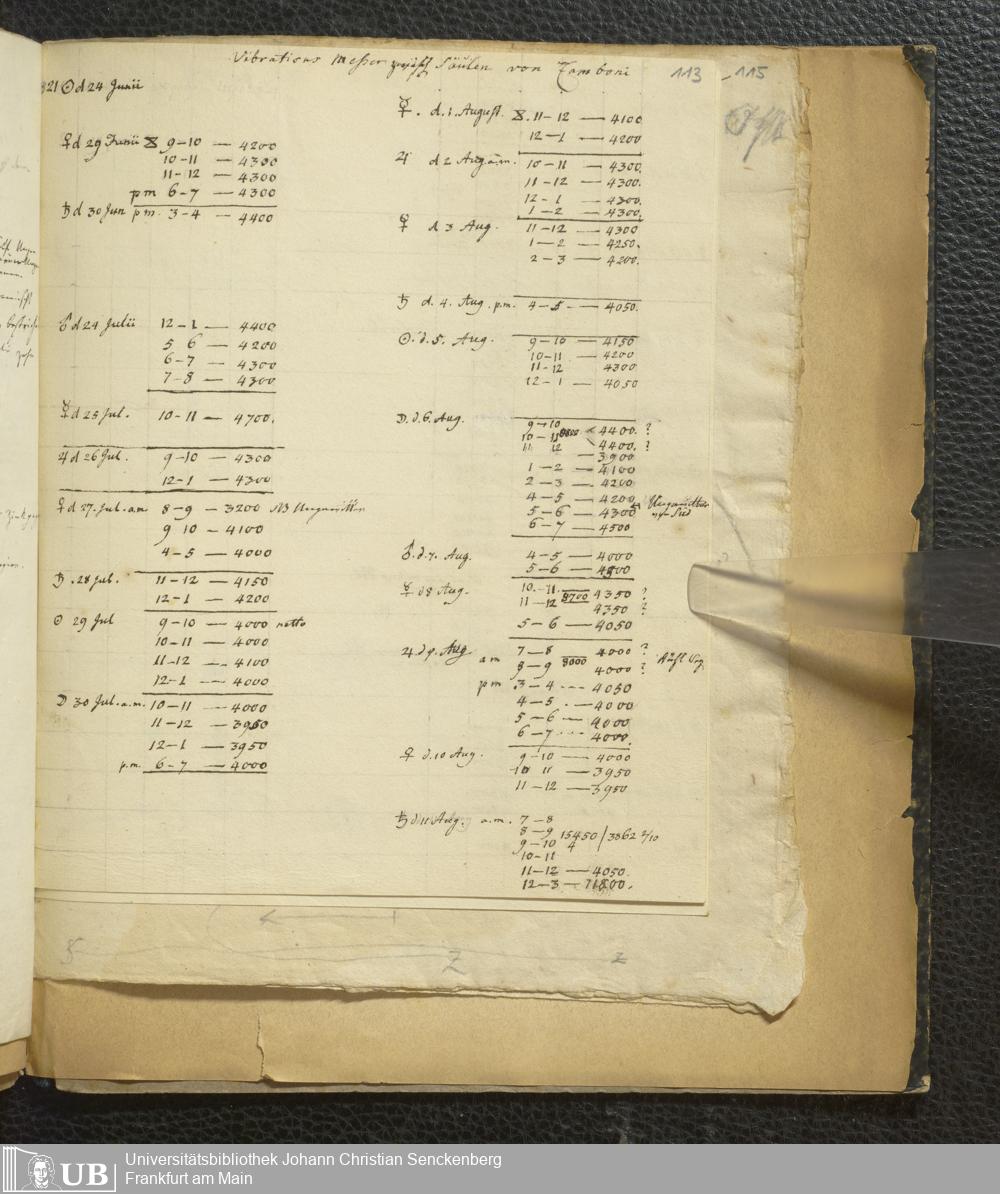 Vibrations Messer Säulen von Zamboni
113 115
21 ☉ d 24 Junii
♀ d 29 Junii 9-10 — 4200
10-11 — 4300
11-12 — 4300
pm 6-7 — 4300
♄ d 30 Jun pm. 3-4 — 4400
♂ d 24 Julii 12-1 — 4400
5 6 — 4200
6-7 — 4300
7-8 — 4300
☿ d 25 Jul. 10-11 — 4700.
♃ d 26 Jul. 9-10 — 4300
12-1 — 4300
♀ d 27. Jul. am 8-9 — 3200 NB Ungewitter
9 10 — 4100
4-5 — 4000
♄ . 28 Jul. 11-12 — 4150
12-1 — 4200
☉ 29 Jul 9-10 — 4000 netto
10-11 — 4000
11-12 — 4100
12-1 — 4000
☽ 30 Jul. a.m. 10-11 — 4000
11-12 — 3950
12-1 — 3950
p.m. 6-7 — 4000
☿ . d. 1. August. 11-12 — 4100
12-1 — 4200
♃ d 2 Aug. a.m. 10-11 — 4300.
11-12 — 4300.
12-1 — 4300.
1-2 — 4300.
♀ d 3 Aug. 11-12 — 4300
1-2 — 4250.
2-3 — 4200.
♄ d. 4. Aug. p.m. 4-5 — 4050.
☉. d. 5. Aug. 9-10 — 4150
10-11 — 4200
11-12 4300
12-1 — 4050
☽. d. 6. Aug. 9-10
10-11 8800 4400. ?
11 12 4400. ?
— 3900
1-2 — 4100
2-3 — 4200
4-5 — 4200
5-6 — 4300 Ungewitter
6-7 — 4500 Süd
♂. d. 7. Aug. 4-5 — 4000
5-6 — 4300
☿ d 8 Aug. 10-11
11-12 8700 4350 ?
4350 ?
5-6 — 4050
♃ d 9. Aug am 7-8 4000 ?
8-9 8000 4000 ?
pm 3-4 --- 4050
4-5 . — 4000
5-6 — 4000
6-7 --- 4000.
♀ d. 10 Aug. 9-10 — 4000
10 11 — 3950
11-12 — 3950
♄ d. 11 Aug. a.m. 7-8
8-9 15450 / 3862 2/10
9-10 4
10-11
11-12 — 4050.
12-3 — 71800.
Z z
UB
Universitätsbibliothek Johann Christian Senckenberg
Frankfurt am Main